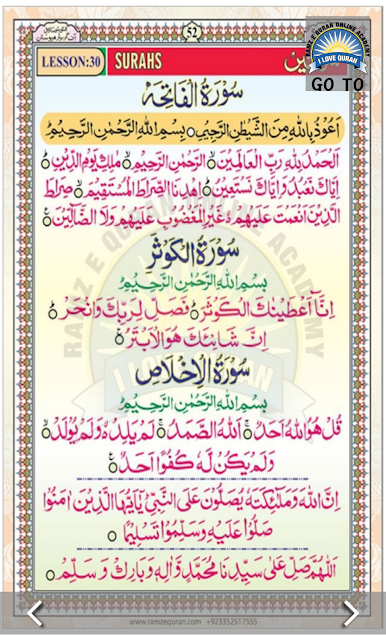 52
LESSON:30
SURAHS
RAMZ E QURAN ONLINE ACADEMY
I LOVE QURAN
GO TO
سُوْرَةُ الْفَاتِحَةِ
اَعُوْذُ بِاللّٰهِ مِنَ الشَّيْطٰنِ الرَّجِيْمِ ○ بِسْمِ اللّٰهِ الرَّحْمٰنِ الرَّحِيْمِ ○
اَلْحَمْدُ لِلّٰهِ رَبِّ الْعَالَمِيْنَ ○ الرَّحْمٰنِ الرَّحِيْمِ ○ مٰلِكِ يَوْمِ الدِّيْنِ ○
اِيَّاكَ نَعْبُدُ وَاِيَّاكَ نَسْتَعِيْنُ ○ اِهْدِنَا الصِّرَاطَ الْمُسْتَقِيْمَ ○ صِرَاطَ
الَّذِيْنَ اَنْعَمْتَ عَلَيْهِمْ ○ غَيْرِ الْمَغْضُوْبِ عَلَيْهِمْ وَلَا الضَّآلِّيْنَ ○
سُوْرَةُ الْكَوْثَرِ
بِسْمِ اللّٰهِ الرَّحْمٰنِ الرَّحِيْمِ
اِنَّآ اَعْطَيْنٰكَ الْكَوْثَرَ ○ فَصَلِّ لِرَبِّكَ وَانْحَرْ ○
اِنَّ شَانِئَكَ هُوَ الْاَبْتَرُ ○
سُوْرَةُ الْاِخْلَاصِ
بِسْمِ اللّٰهِ الرَّحْمٰنِ الرَّحِيْمِ
قُلْ هُوَ اللّٰهُ اَحَدٌ ○ اَللّٰهُ الصَّمَدُ ○ لَمْ يَلِدْ ○ وَلَمْ يُوْلَدْ ○
وَلَمْ يَكُنْ لَّهٗ كُفُوًا اَحَدٌ ○
اِنَّ اللّٰهَ وَمَلٰٓئِكَتَهٗ يُصَلُّوْنَ عَلَى النَّبِيِّ يٰٓاَيُّهَا الَّذِيْنَ اٰمَنُوْا
صَلُّوْا عَلَيْهِ وَسَلِّمُوْا تَسْلِيْمًا ○
اَللّٰهُمَّ صَلِّ عَلٰى سَيِّدِنَا مُحَمَّدٍ وَّاٰلِهٖ وَبَارِكْ وَسَلِّمْ ○
www.ramzequran.com +923352517555